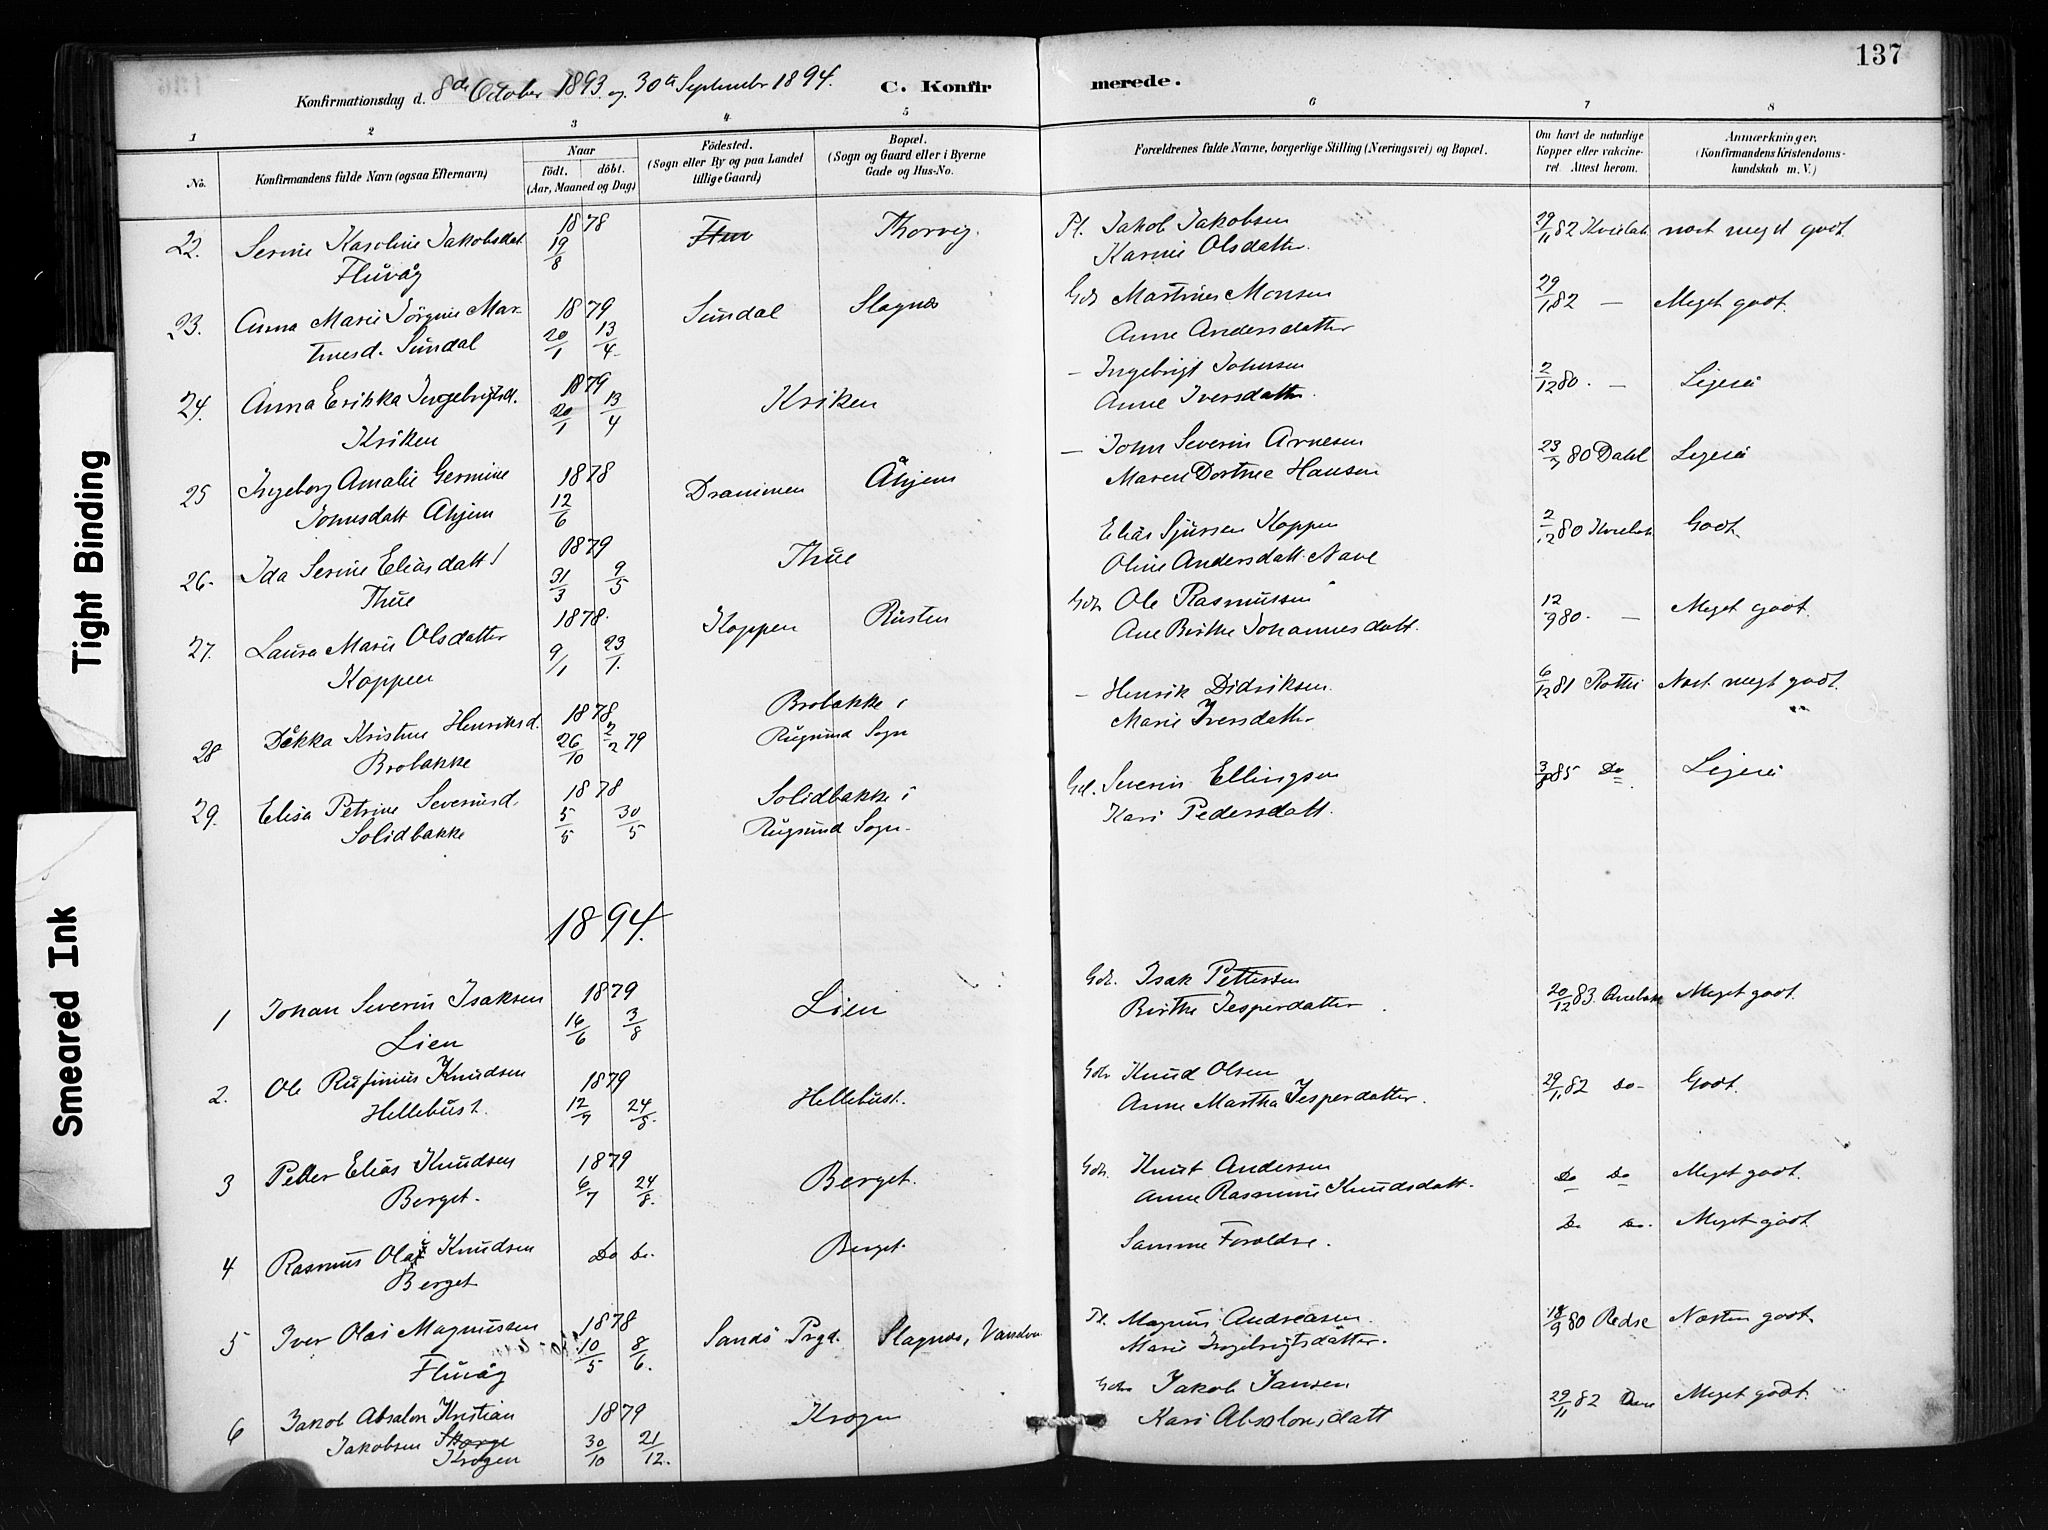 137
Konfirmationsdag d. 8de October 1893 og 30te September 1894. C. Konfirmerede.
1 2 3 4 5 6 7 8
No. Konfirmandens fulde Navn (ogsaa Efternavn) Naar födt. döbt. (Aar, Maaned og Dag) Födested. (Sogn eller By og paa Landet tillige Gaard) Bopæl. (Sogn og Gaard eller i Byerne Gade og Hus-No. Forældrenes fulde Navne, borgerlige Stilling (Næringsvei) og Bopæl. Om havt de naturlige Kopper eller vakcineret. Attest herom. Anmærkninger, (Konfirmandens Kristendomskundskab m. V.)
22. Serine Karoline Jakobsdat 1878 Thorvig Pl. Jakob Jakobsen 29/11 82 næst meget godt.
Fluvåg 19/8 Karine Olsdatter.
23. Anna Marie Jörgine Mar- 1879 Sundal Slagnes Gdr Martines Monsen 29/1 82 — Meget godt.
tinesd. Sundal 20/1 13/4 Anne Andersdatter
24. Anna Erikka Ingebrigtsd. 1879 Kriken — Ingebrigt Johnsen 2/12 80. — Ligeså
Kriken 20/1 13/4 Anne Iversdatter.
25 Ingeborg Amalie Germine 1878 Drammen Åhjem — John Severin Arnesen 23/7 80 Dahl Ligeså
Johnsdatt Åhjem 12/6 Maren Dortnee Hansen
26. Ida Serine Eliasdatt 1879 Thue Elias Sjursen Koppen 2/12 80 Godt.
Thue 31/3 9/5 Oline Andersdatt. Nave
27. Laura Marie Olsdatter 1878. Koppen Rusten Gdr Ole Rasmussen 12/9 80. — Meget godt.
Koppen 9/1 23/1. Ane Birthe Johannesdatt.
28 Dekka Kristine Henriksd. 1878 Brobakke i — Henrik Didriksen. 6/12 81 Rothe Næst megt godt.
Brobakke 26/10 2/2 79 Rugsund Sogn Marie Iversdatter
29. Elisa Petrine Severinsd. 1878 Solidbakke i Gd. Severin Ellingsen 3/8 85 Do Ligeså
Solidbakke 5/5 30/5 Rugsund Sogn. Kari Pedersdatt.
1894.
1 Johan Severin Isaksen 1879 Lien Gdr. Isak Pettersen 20/12 83. Meget godt.
Lien 16/6 3/8 Birthe Jesperdatter.
2. Ole Rufinius Knudsen 1879 Hellebust. Gdr Knud Olsen 29/1 82 Do- Godt.
Hellebust. 12/7 24/8. Anne Martha Jesperdatter.
3 Petter Elias Knudsen 1879 Berget. Gdr. Knut Andersen Do Do Meget godt.
Berget. 6/7 24/8. Anne Rasmine Knudsdatt.
4 Rasmus Olai Knudsen Do Do. Berget. Samme Foroldre. Do Do. Meget godt.
Berget
5 Iver Olai Magnussen 1878 Sandö Prgd. Slagnes, Vandve Pl. Magnus Andreasen 18/9 80 Redse Næsten godt.
Fluvåg 10/5 8/6. Marie Ingebrigtsdatter.
6 Jakob Absalon Kristian 1879 Krogen Gdr Jakob Jansen 29/11 82 Meget godt.
Jakobsen Skorge 30/10 21/12. Kari Absalonsdatt
Krogen
Tight Binding
Smeared Ink